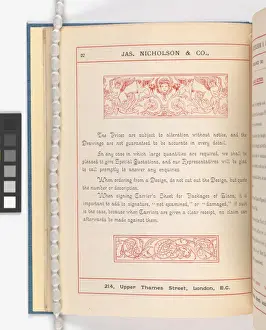 22
JAS. NICHOLSON & CO.,
The Prices are subject to alteration without notice, and the
Drawings are not guaranteed to be accurate in every detail.
In any case in which large quantities are required, we shall be
pleased to give Special Quotations, and our Representatives will be glad
to call promptly to answer any enquiries.
When ordering from a Design, do not cut out the Design, but quote
the number or description.
When signing Carrier's Sheet for Packages of Glass, it is
important to add to signature, "not examined," or "damaged," if such
is the case, because when Carriers are given a clear receipt, no claim can
afterwards be made against them.
214, Upper Thames Street, London, E.C.